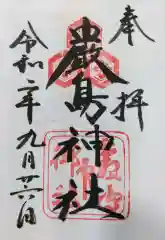 奉拝
嚴島神社
令和二年九月廿六日